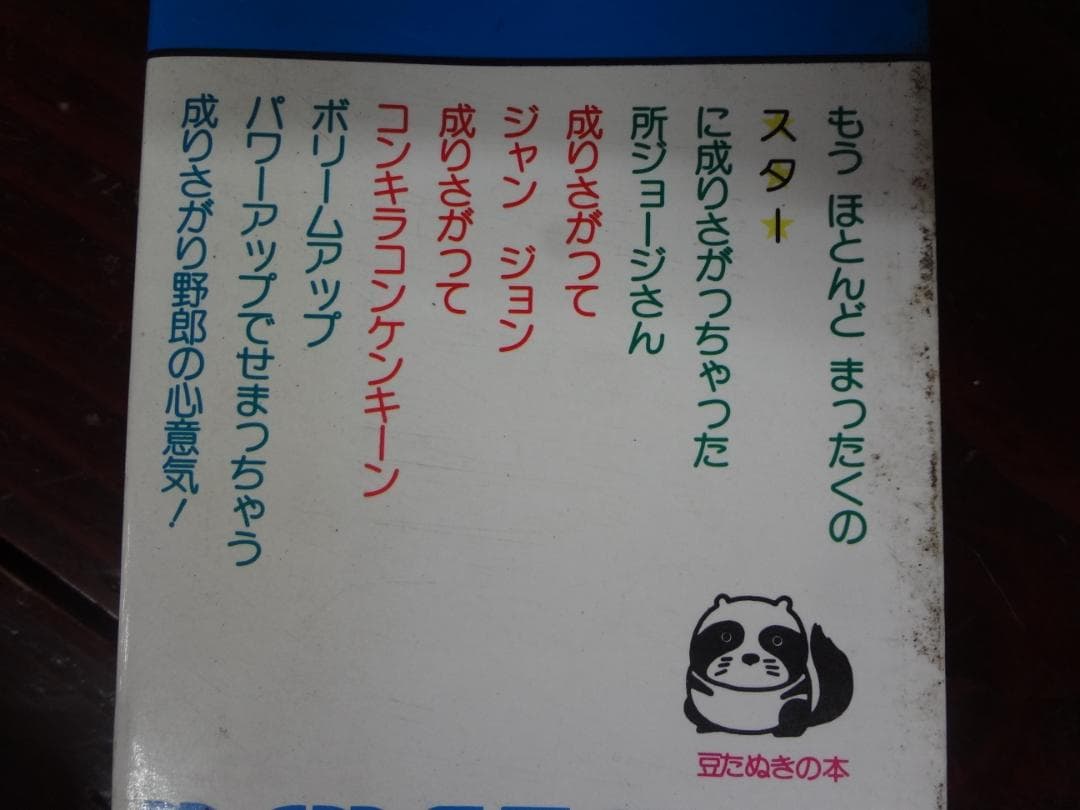 もう ほとんど まったくの
スター
に成りさがっちゃった
所ジョージさん
成りさがって
ジャン ジョン
成りさがって
コンキラコンケンキーン
ボリームアップ
パワーアップでせまっちゃう
成りさがり野郎の心意気!
豆たぬきの本